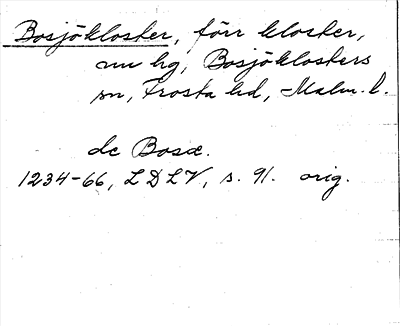 Bosjökloster, förr kloster,
nu hg, Bosjöklosters
sn, Frosta hd, Malm. l.
de Bosæ.
1234-66, LDLV, s. 91. orig.